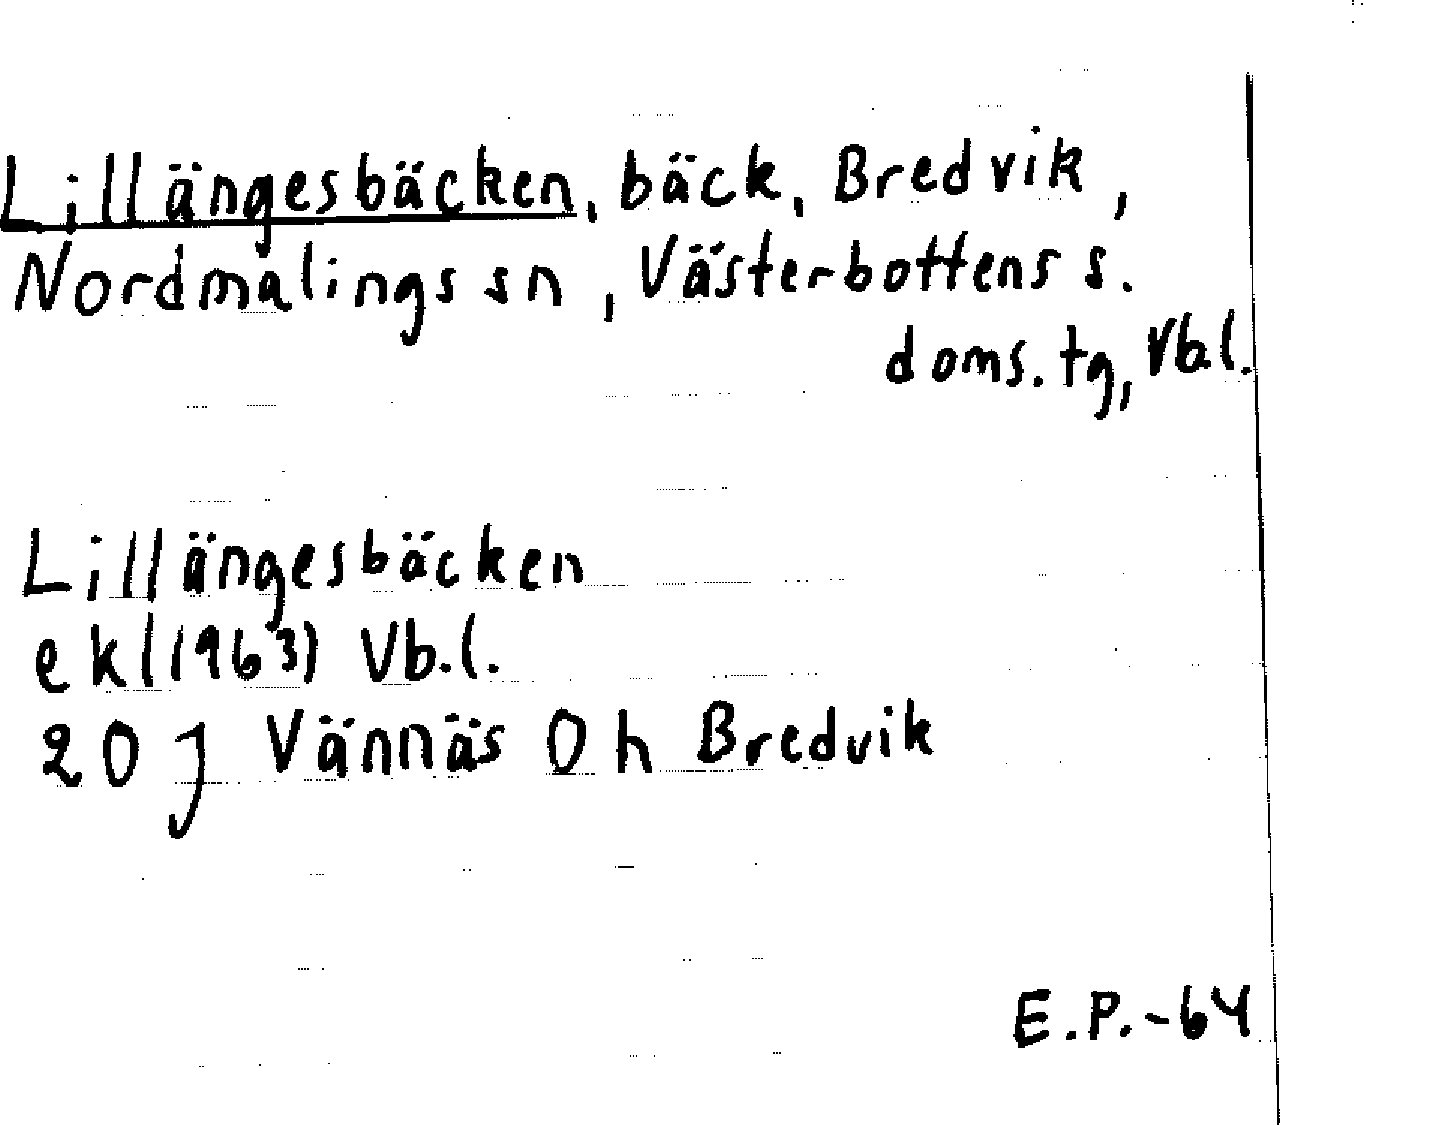 Lillängesbäcken, bäck, Bredvik,
Nordmalings sn, Västerbottens s.
doms. tg, Vb.l.
Lillängesbäcken
ekl (1963) Vb.l.
20 J Vännäs 0 h Bredvik
E.P.-64